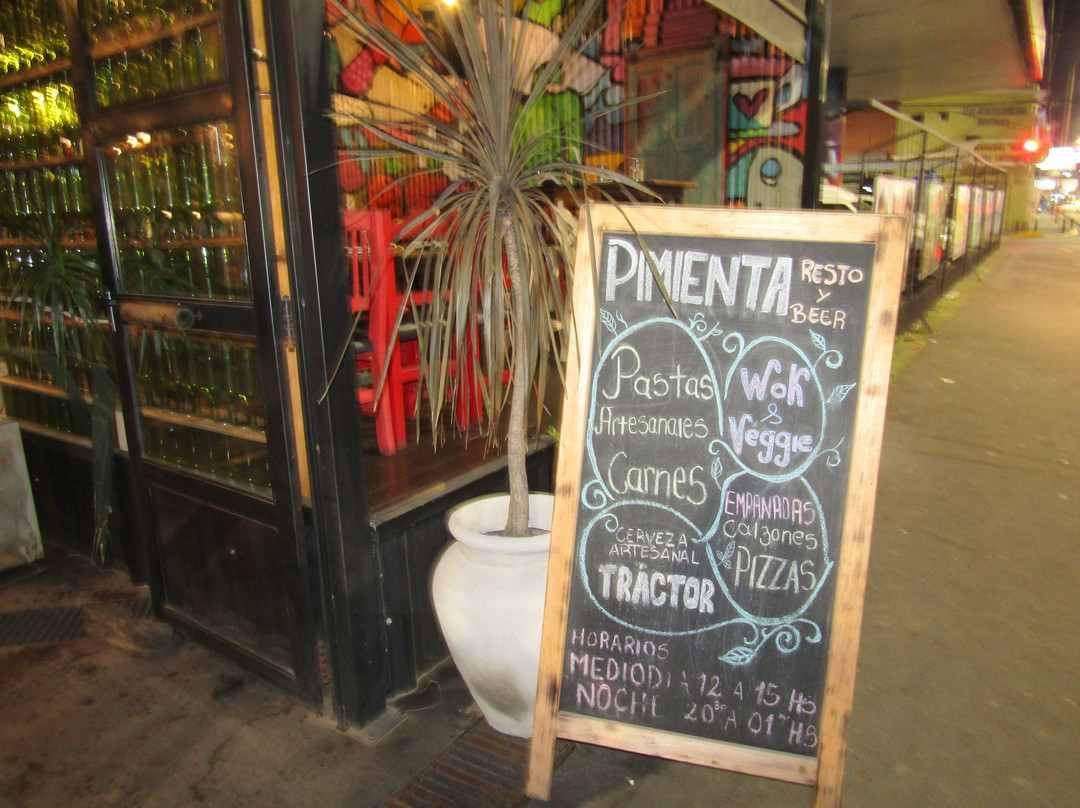 PIMIENTA
RESTO
Y
BEER
Pastas
Artesanales
Carnes
WOK
&
Veggie
EMPANADAS
Calzones
PIZZAS
CERVEZA
ARTESANAL
TRÁCTOR
HORARIOS
MEDIODIA 12 A 15 HS
NOCHE 20³⁰ A 01⁰⁰ HS